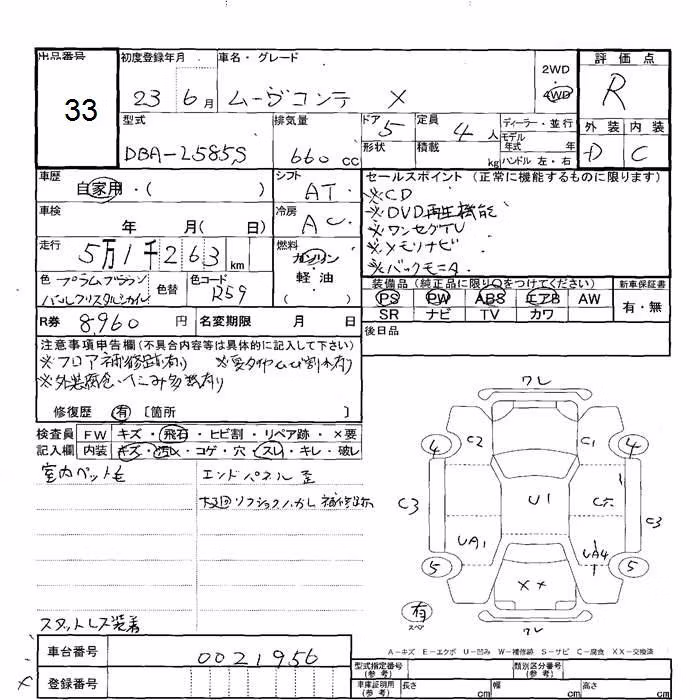 出品番号
33
初度登録年月
23 6月
車名・グレード
ムーヴコンテ X
2WD
4WD
評価点
R
外装 内装
D C
型式
DBA-L585S
排気量
660cc
ドア 5
形状
定員 4人
積載 kg
ディーラー・並行
モデル年式 年
ハンドル 左・右
車歴
自家用・( )
シフト
AT
車検
年 月( 日)
冷房
AC
走行
5万1千263km
燃料
ガソリン
軽油
( )
色 プラムブラウン
パールクリスタルシャイン
色替
色コード
R59
R券 8,960円
名変期限 月 日
セールスポイント (正常に機能するものに限ります)
※CD
※DVD再生機能
※ワンセグTV
※メモリナビ
※バックモニタ
装備品(純正品に限り○をつけてください)
PS PW ABS エアB AW
SR ナビ TV カワ
新車保証書
有・無
後日品
注意事項申告欄(不具合内容等は具体的に記入して下さい)
※フロア補修跡有り
※外装腐食・凹み多数有り
修復歴 有 〔箇所 〕
検査員記入欄
FW キズ・飛石・ヒビ割・リペア跡・×要
内装 キズ・汚レ・コゲ・穴・スレ・キレ・破レ
室内ペット毛
スタットレス装着
エンドパネル歪
補修跡
ワレ
4 C2 C1 4
C3 U1 C3
UA1 UA4
5 XX 5
有
スペア
ワレ
A-キズ E-エクボ U-凹み W-補修跡 S-サビ C-腐食 XX-交換済
車台番号
0021956
登録番号
型式指定番号(参考)
類別区分番号(参考)
車庫証明用(参考)
長さ cm 幅 cm 高さ cm